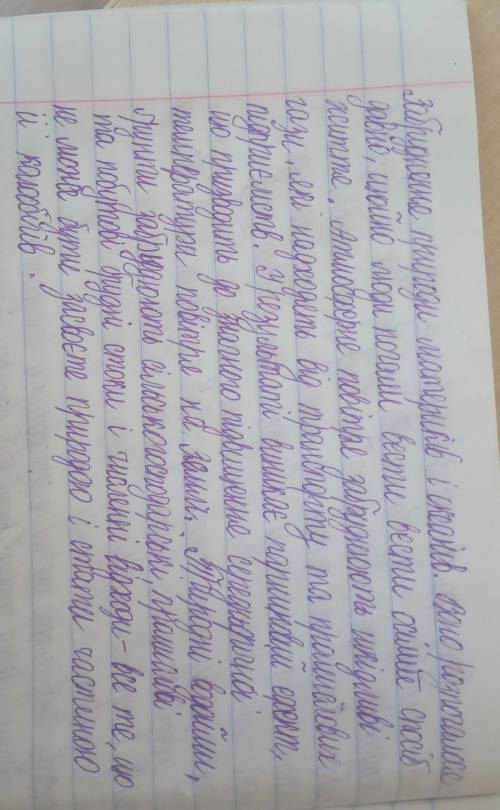 Забруднення природи материків і океанів. Воно розпочалося
давно, щойно люди почали вести вести осілий спосіб
життя. Атмосферне повітря забруднюють шкідливі
гази, які надходять від транспорту та промислових
підприємств. У результаті виникає парниковий ефект,
що призводить до значного підвищення середньорічної
температури повітря на землі. Природні водойми,
ґрунти забруднюють сільськогосподарські, промислові
та побутові брудні стоки і численні відходи – все те, що
не може бути засвоєне природою і стати частиною
її колообігів.